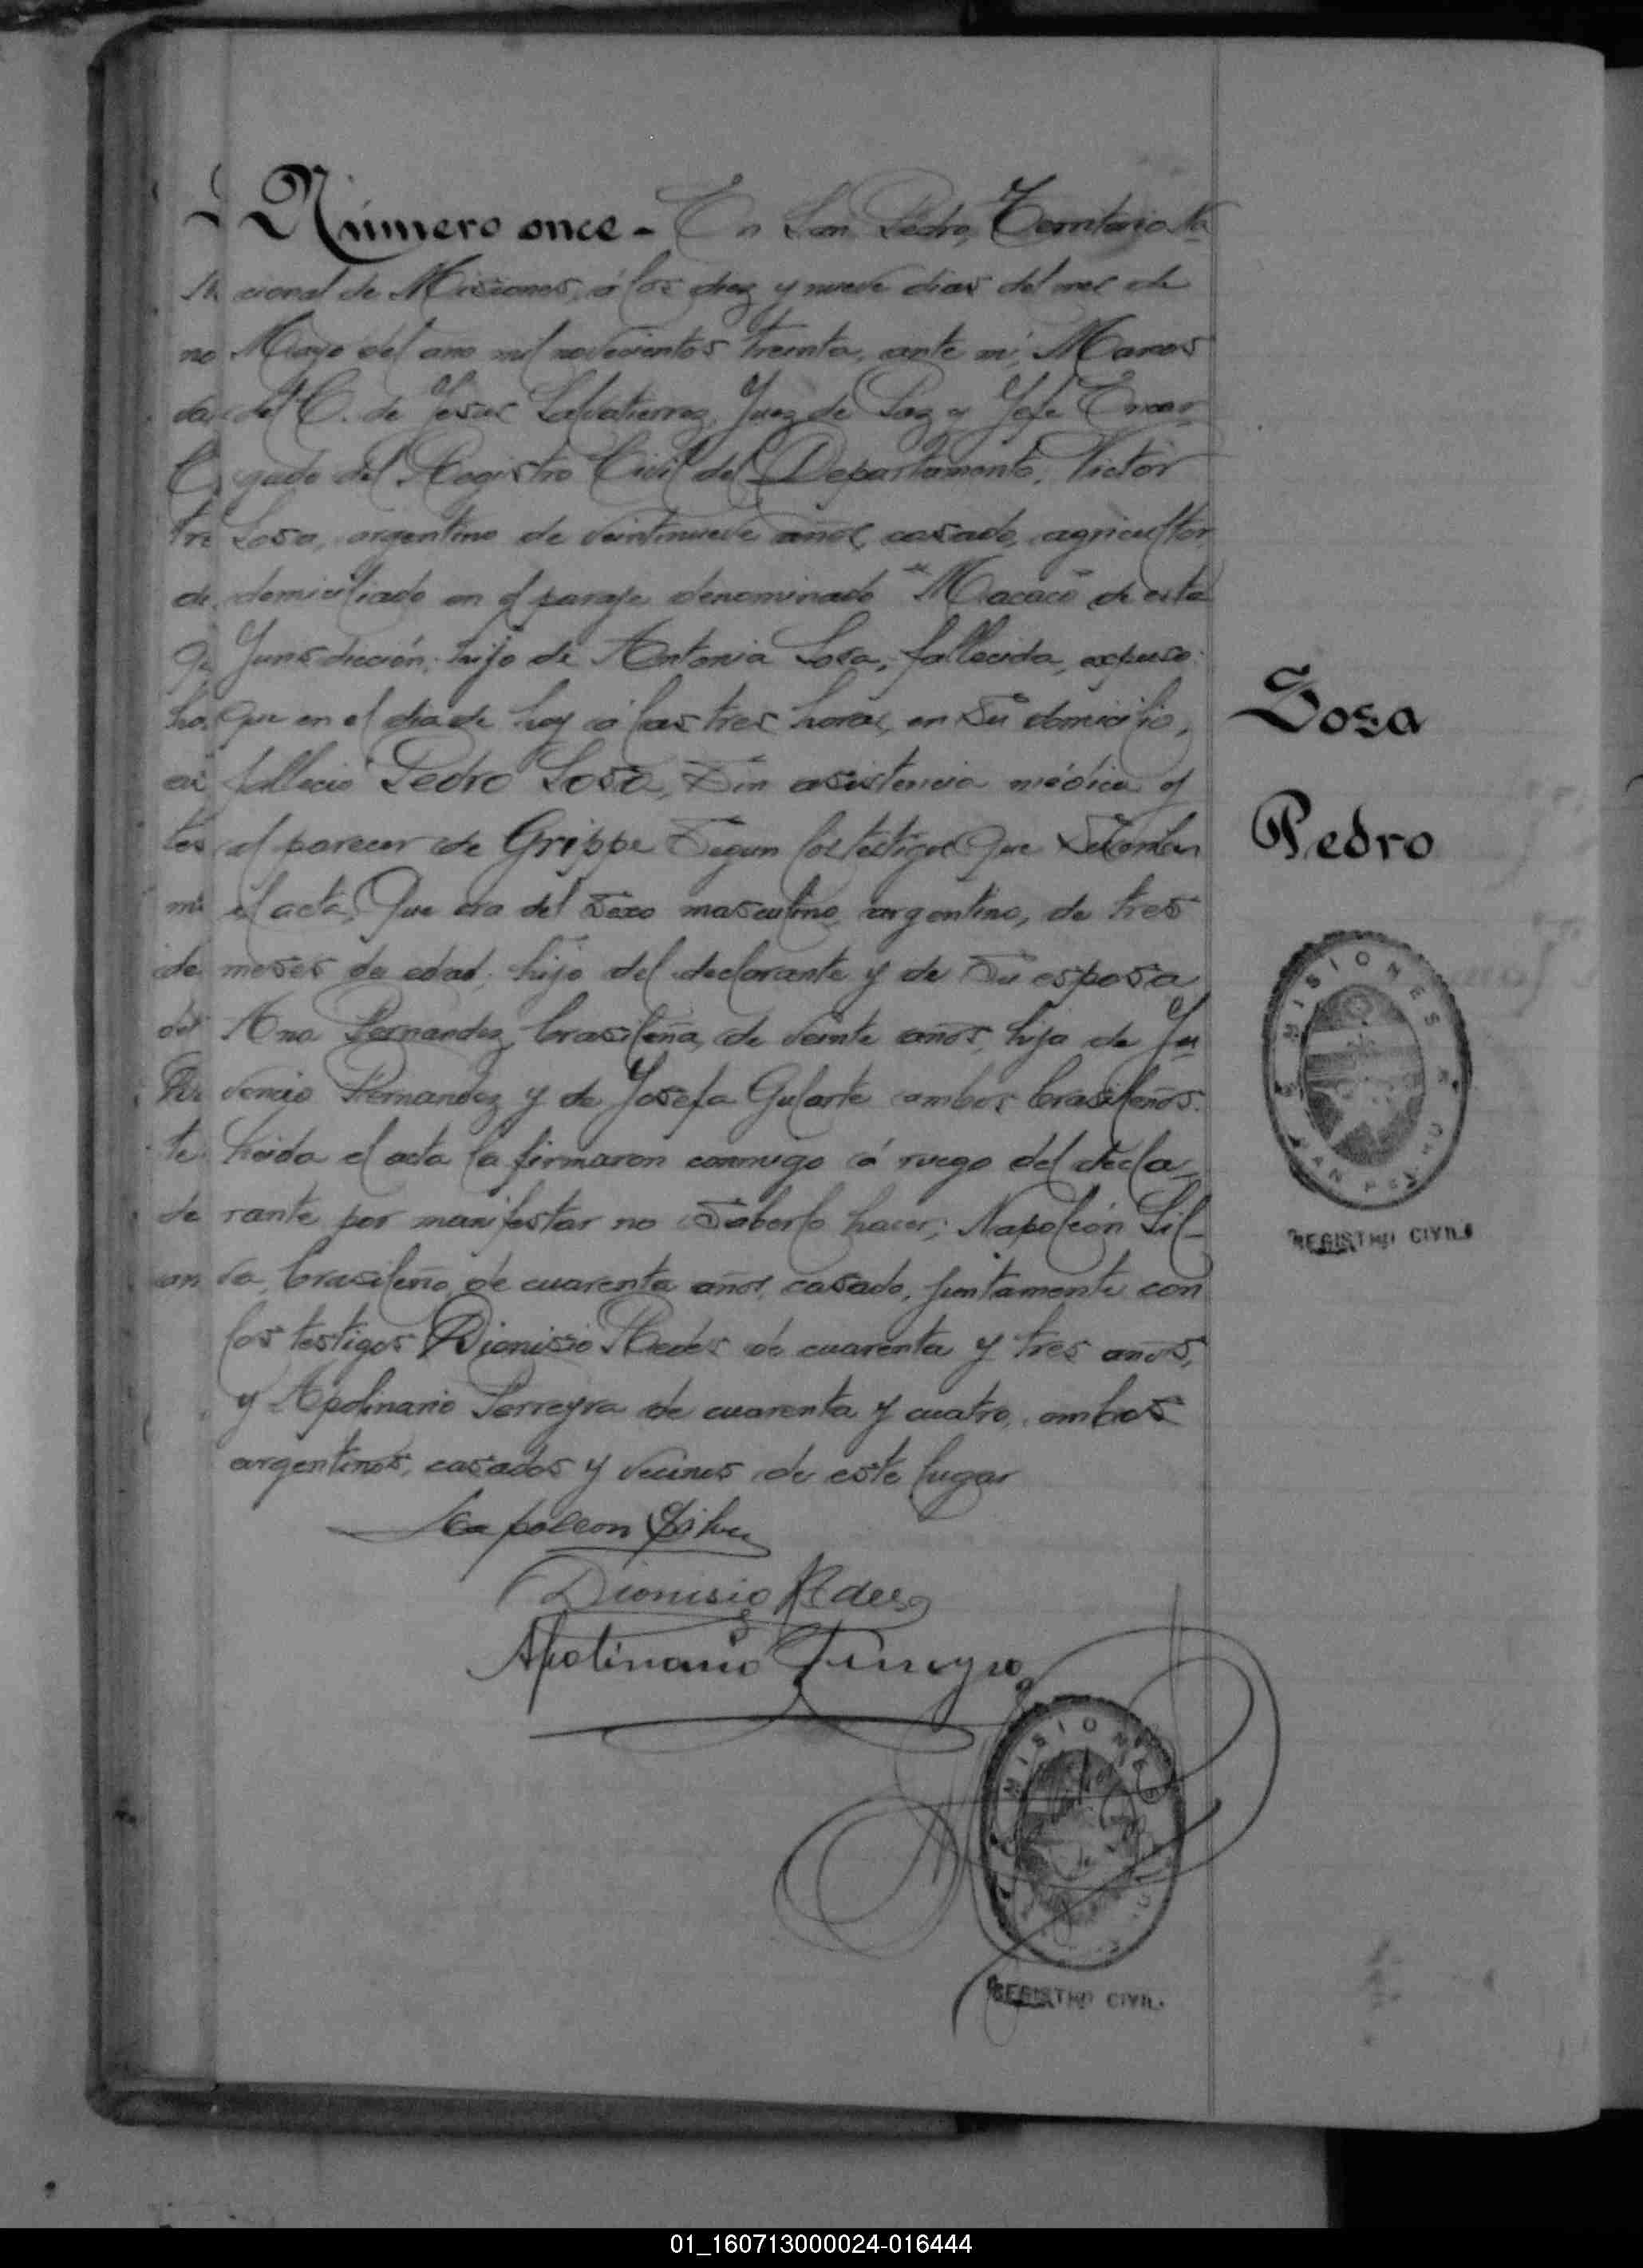 Número once - En San Pedro, Territorio Na
cional de Misiones, á los diez y nueve dias del mes de
Mayo del año mil novecientos treinta, ante mi, Marcos
del C. de Jesus Salvatierra, Juez de Paz y Jefe Encar
gado del Registro Civil del Departamento, Victor
Sosa, argentino de veintinueve años, casado, agricultor
domiciliado en el paraje denominado "Macaco" de esta
Jurisdicción; hijo de Antonia Sosa, fallecida, expuso:
Que en el dia de hoy á las tres horas, en su domicilio,
falleció Pedro Sosa, sin asistencia médica y
al parecer de Grippe segun los testigos que
el acta, Que era del sexo masculino, argentino, de tres
meses de edad, hijo del declarante y de su esposa
Ana Fernandez, brasileña, de veinte años, hija de Ju
vencio Fernandez y de Josefa Gularte ambos brasileños.
Leida el acta la firmaron conmigo á ruego del decla-
rante por manifestar no saberlo hacer; Napoleón Sil-
va, brasileño, de cuarenta años, casado, juntamente con
los testigos Dionisio de cuarenta y tres años,
y Apolinario Ferreyra de cuarenta y cuatro, ambos
argentinos, casados y vecinos de este lugar
Napoleon Silva
Dionisio
Apolinario Ferreyra
Sosa
Pedro
MISIONES
SAN PEDRO
REGISTRO CIVIL
MISIONES
REGISTRO CIVIL
01_160713000024-016444